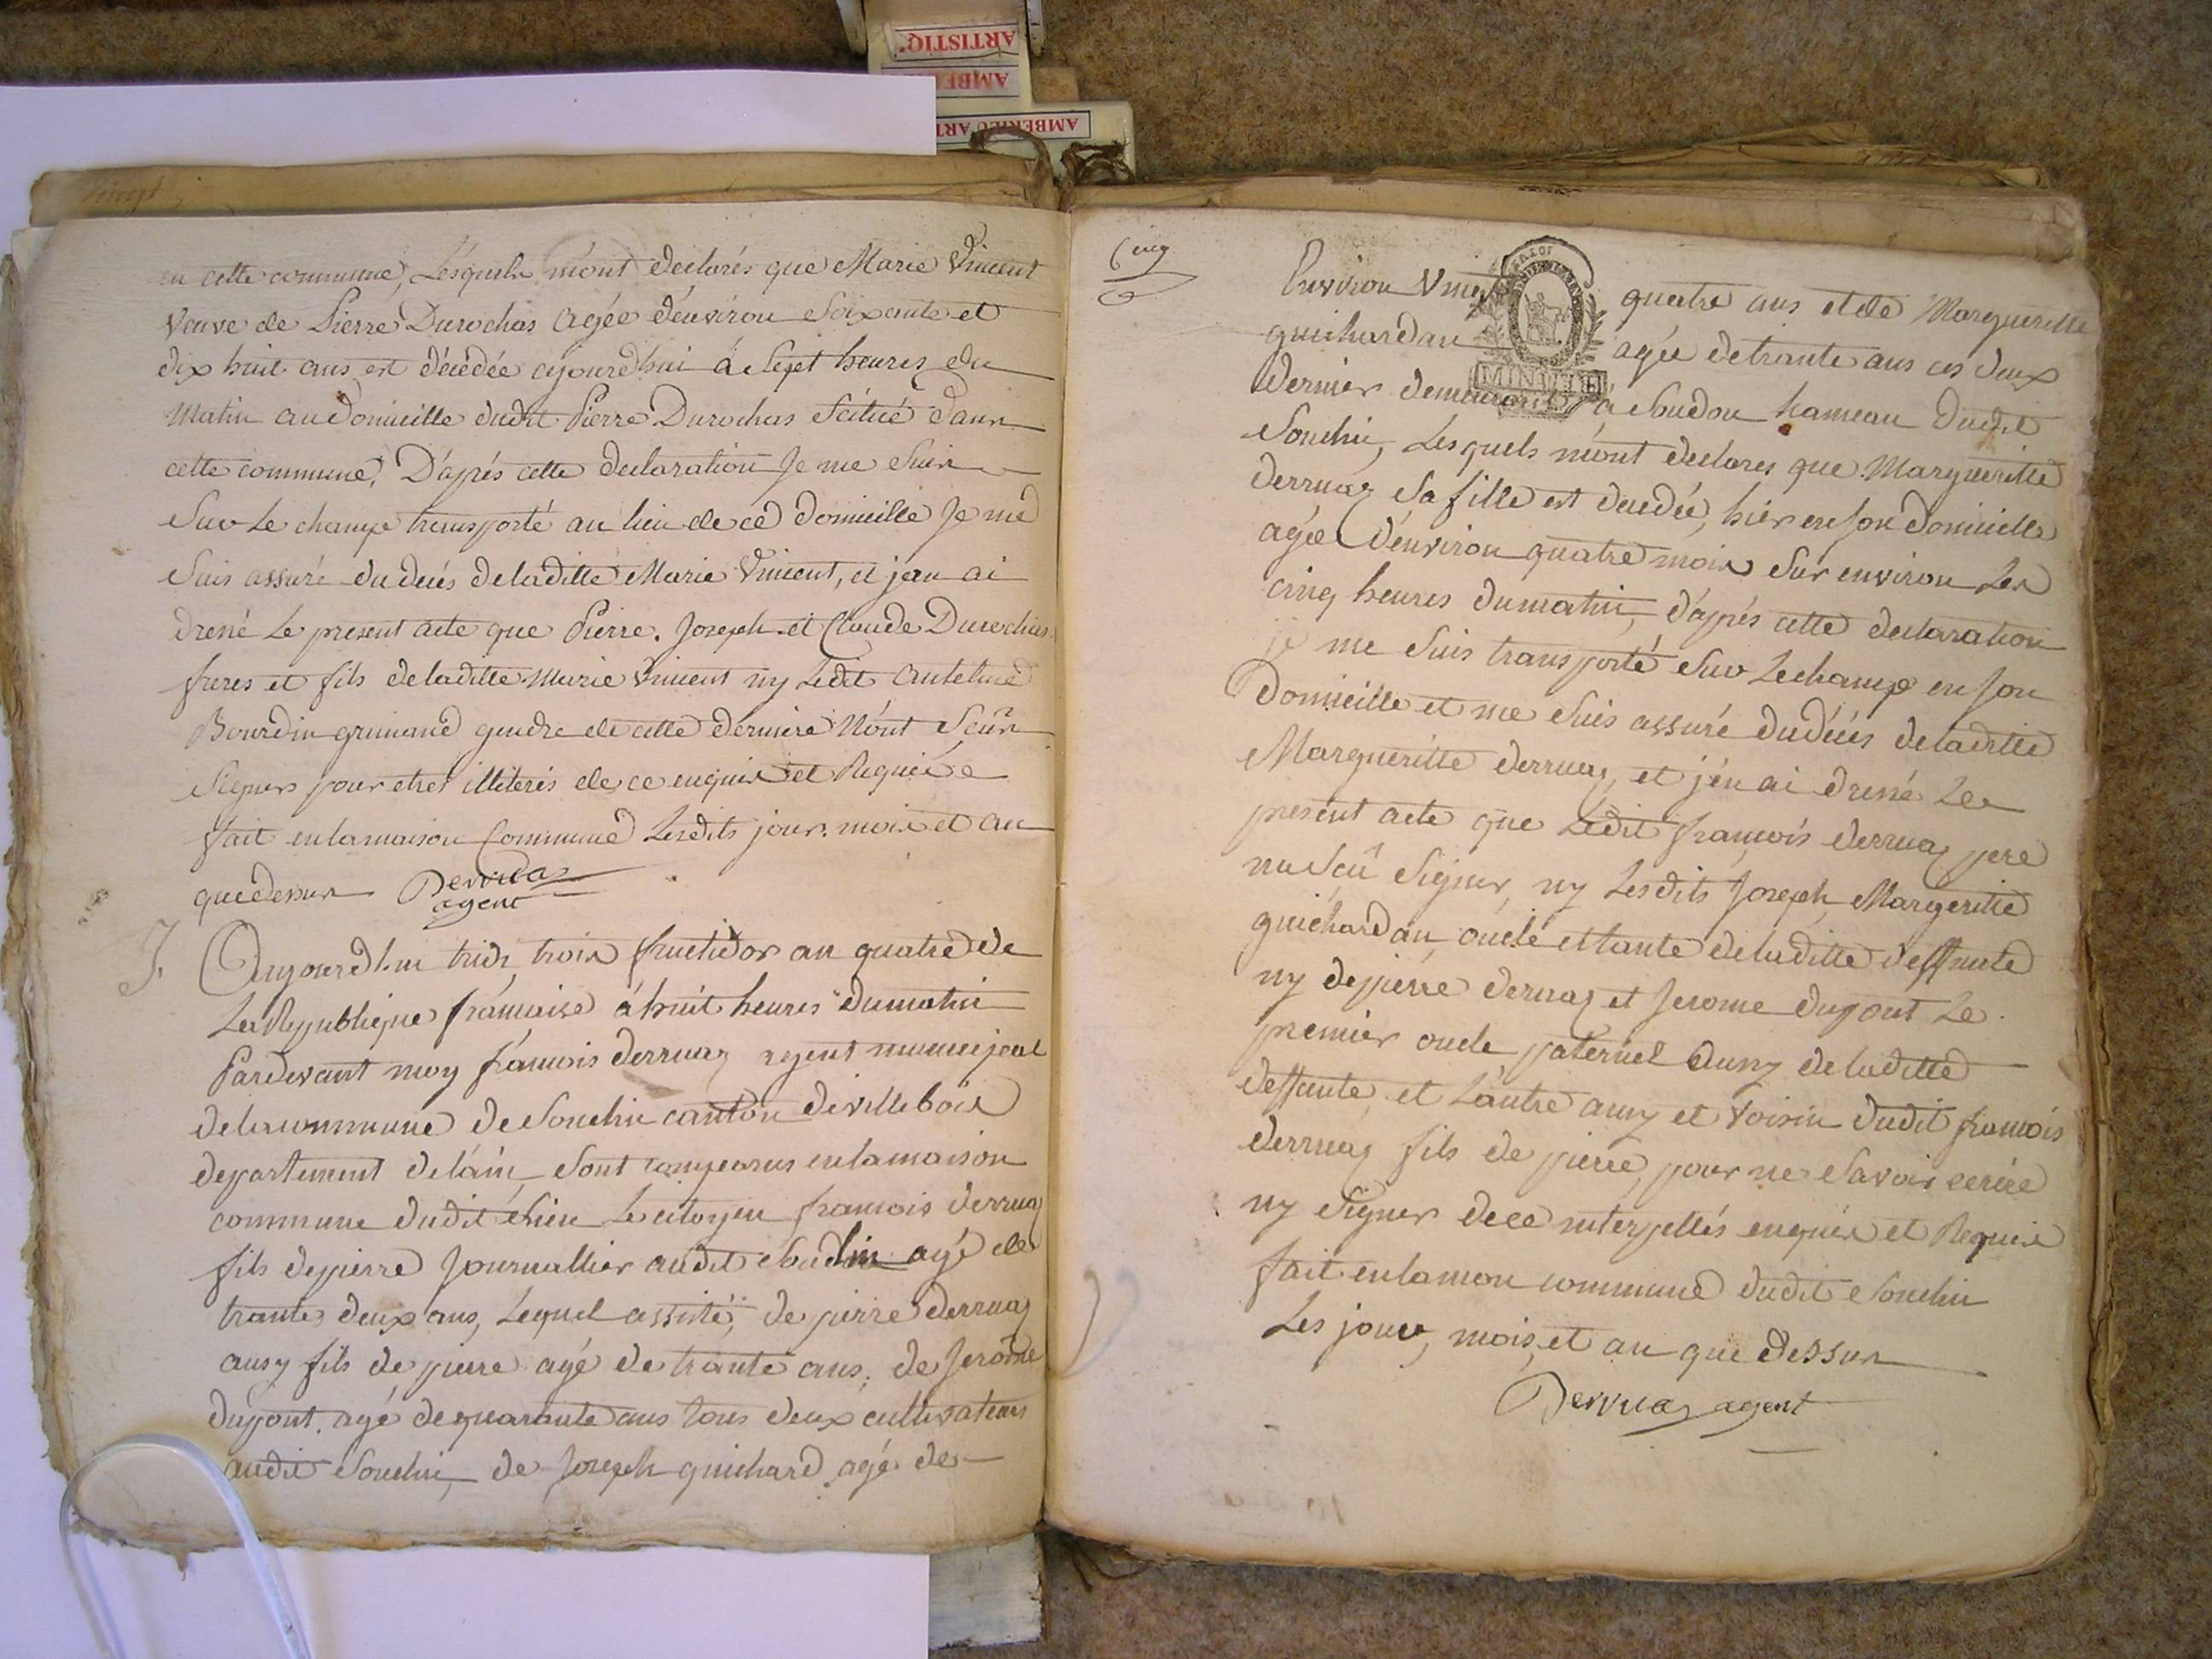 ARTISTIQ
AMBE
AMBERIEU ART
vingt
en cette commune, Lesquels m'ont declarés que Marie Vincent
veuve de Pierre Durochas agée d'environ Soixante et
dix huit ans est décédée ajourd'hui à Sept heures du
Matin au Domicille dudit Pierre Durochas Scitué dans
cette commune. D'aprés cette declaration Je me Suis
Sur Le champ transporté au lieu de ce Domicille Je me
Suis assuré du decés deladitte Marie Vincent, et j'en ai
dressé Le present acte que Pierre. Joseph et Claude Durochas
freres et fils deladitte Marie Vincent ny Ledit Antelme
Bourdin grimand gendre de cette derniere N'ont Sçûs
Signers pour etres illiterés de ce enquis et Requis
fait enlamaison Commune Lesdits jour. mois et an
quedessus Derruaz
agent
J. Aujourd'hui tridi trois fructidor an quatre de
La Republique française à huit heures dumatin
Pardevant moy françois derruaz agent municipal
delacommune de Souclin canton de villebois
departement de l'ain, Sont comparus enlamaison
commune dudit Lieu Le citoyen françois derruaz
fils depierre Journallier audit Souclin agé de
trante deux ans, Lequel assisté, de pierre derruaz
aussy fils de pierre agé de trante ans, de Jerôme
dupont. agé dequarante ans tous deux cultivateurs
audit Souclin, de Joseph guichard agé de
Cinq
Environ Vingt quatre ans et de Margueritte
guichardan agée detrante ans ces deux
dernier demeurant à Soudon hameau dudit
Souclin, Lesquels m'ont declares que Margueritte
derruaz Sa fille est decedée, hier en son domicille
agée d'environ quatre mois Sur environ Les
cinq heures dumatin, d'aprés cette declaration
je me Suis transporté Sur Lechamp en son
domicille et me Suis assuré dudécés deladitte
Margueritte derruaz, et j'en ai dressé Le
present acte que Ledit françois derruaz pere
na Sçû Signer, ny Lesdits Joseph, Margeritte
guichardan, oncle et tante deladitte deffunte
ny depierre derruaz et Jerome dupont Le
premier oncle paternel aussy deladitte
deffunte, et L'autre amy et voisin dudit françois
derruaz fils de pierre, pour ne Savoir ecrire
ny Signer de ce interpellés enquis et Requis
fait enlamon commune dudit Souclin
Les jour, mois, et an que dessus
Derruaz agent